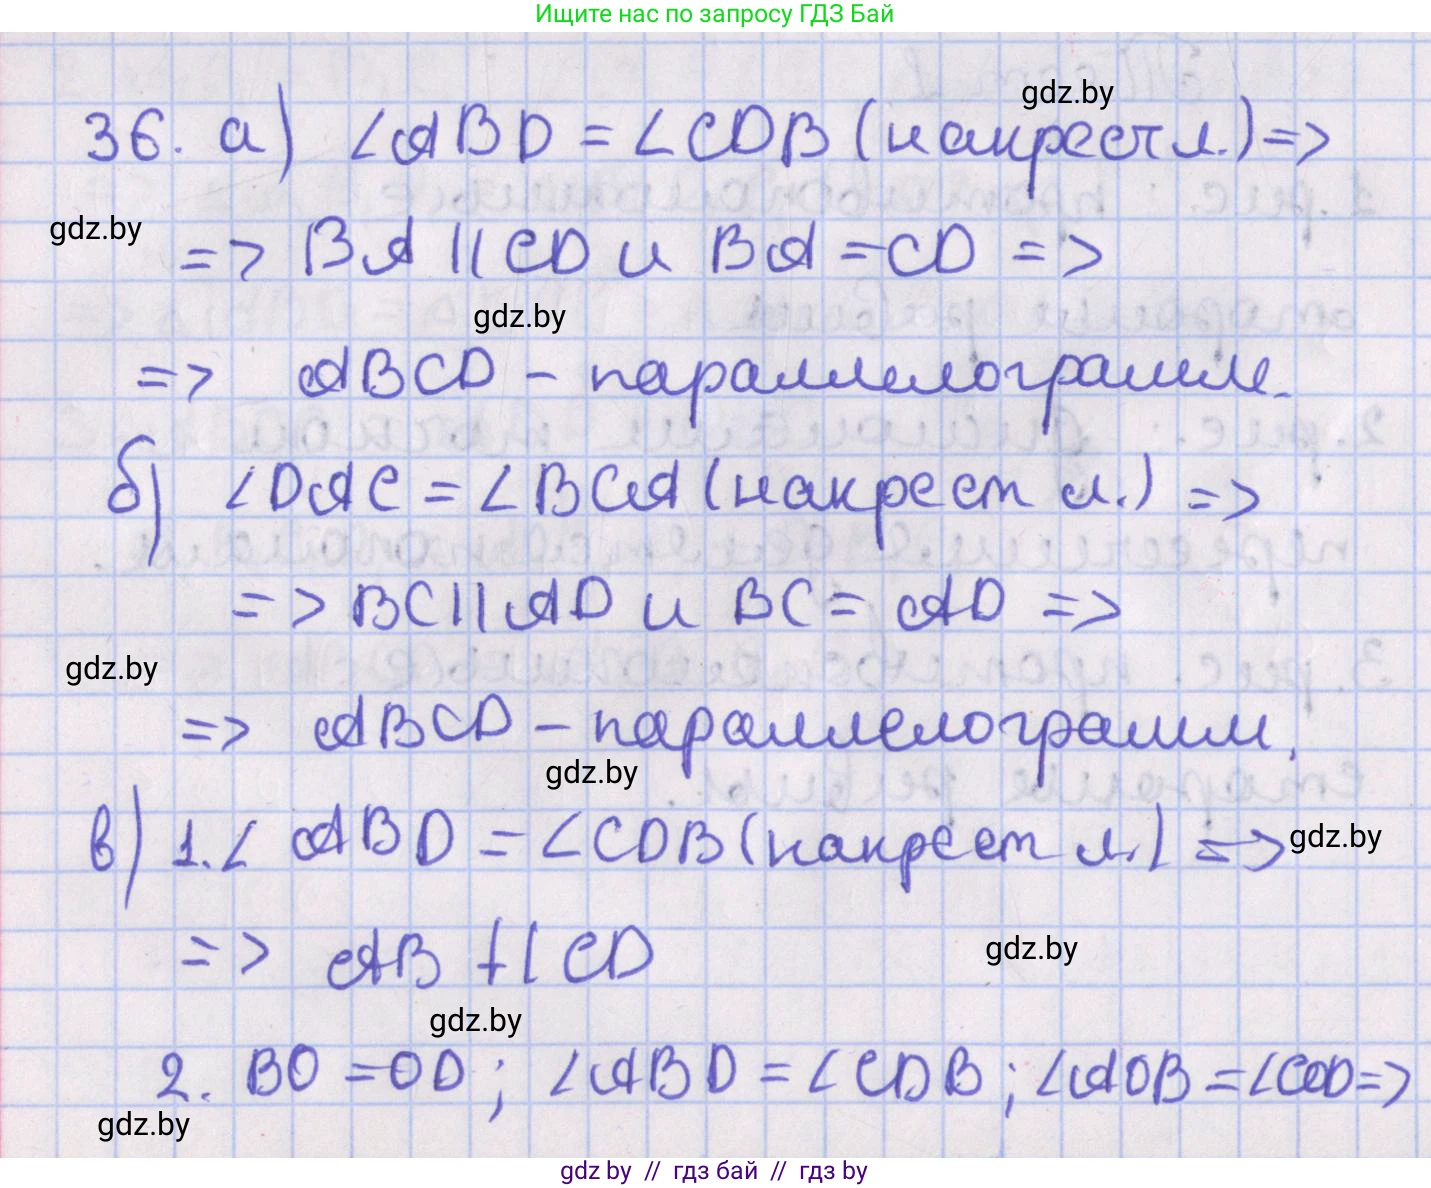 Ищите нас по запросу ГДЗ Бай
gdz.by
36. а) ∠ABD = ∠CDB (накрест л.) =>
gdz.by
=> BA || CD и BA = CD =>
gdz.by
=> ABCD - параллелограмм.
б) ∠DAC = ∠BCA (накрест л.) =>
=> BC || AD и BC = AD =>
gdz.by
=> ABCD - параллелограмм.
gdz.by
в) 1. ∠ABD = ∠CDB (накрест л.) =>
gdz.by
=> AB || CD
gdz.by
gdz.by
2. BO = OD; ∠ABD = ∠CDB; ∠AOB = ∠COD =>
gdz.by
gdz by // гдз бай // гдз by